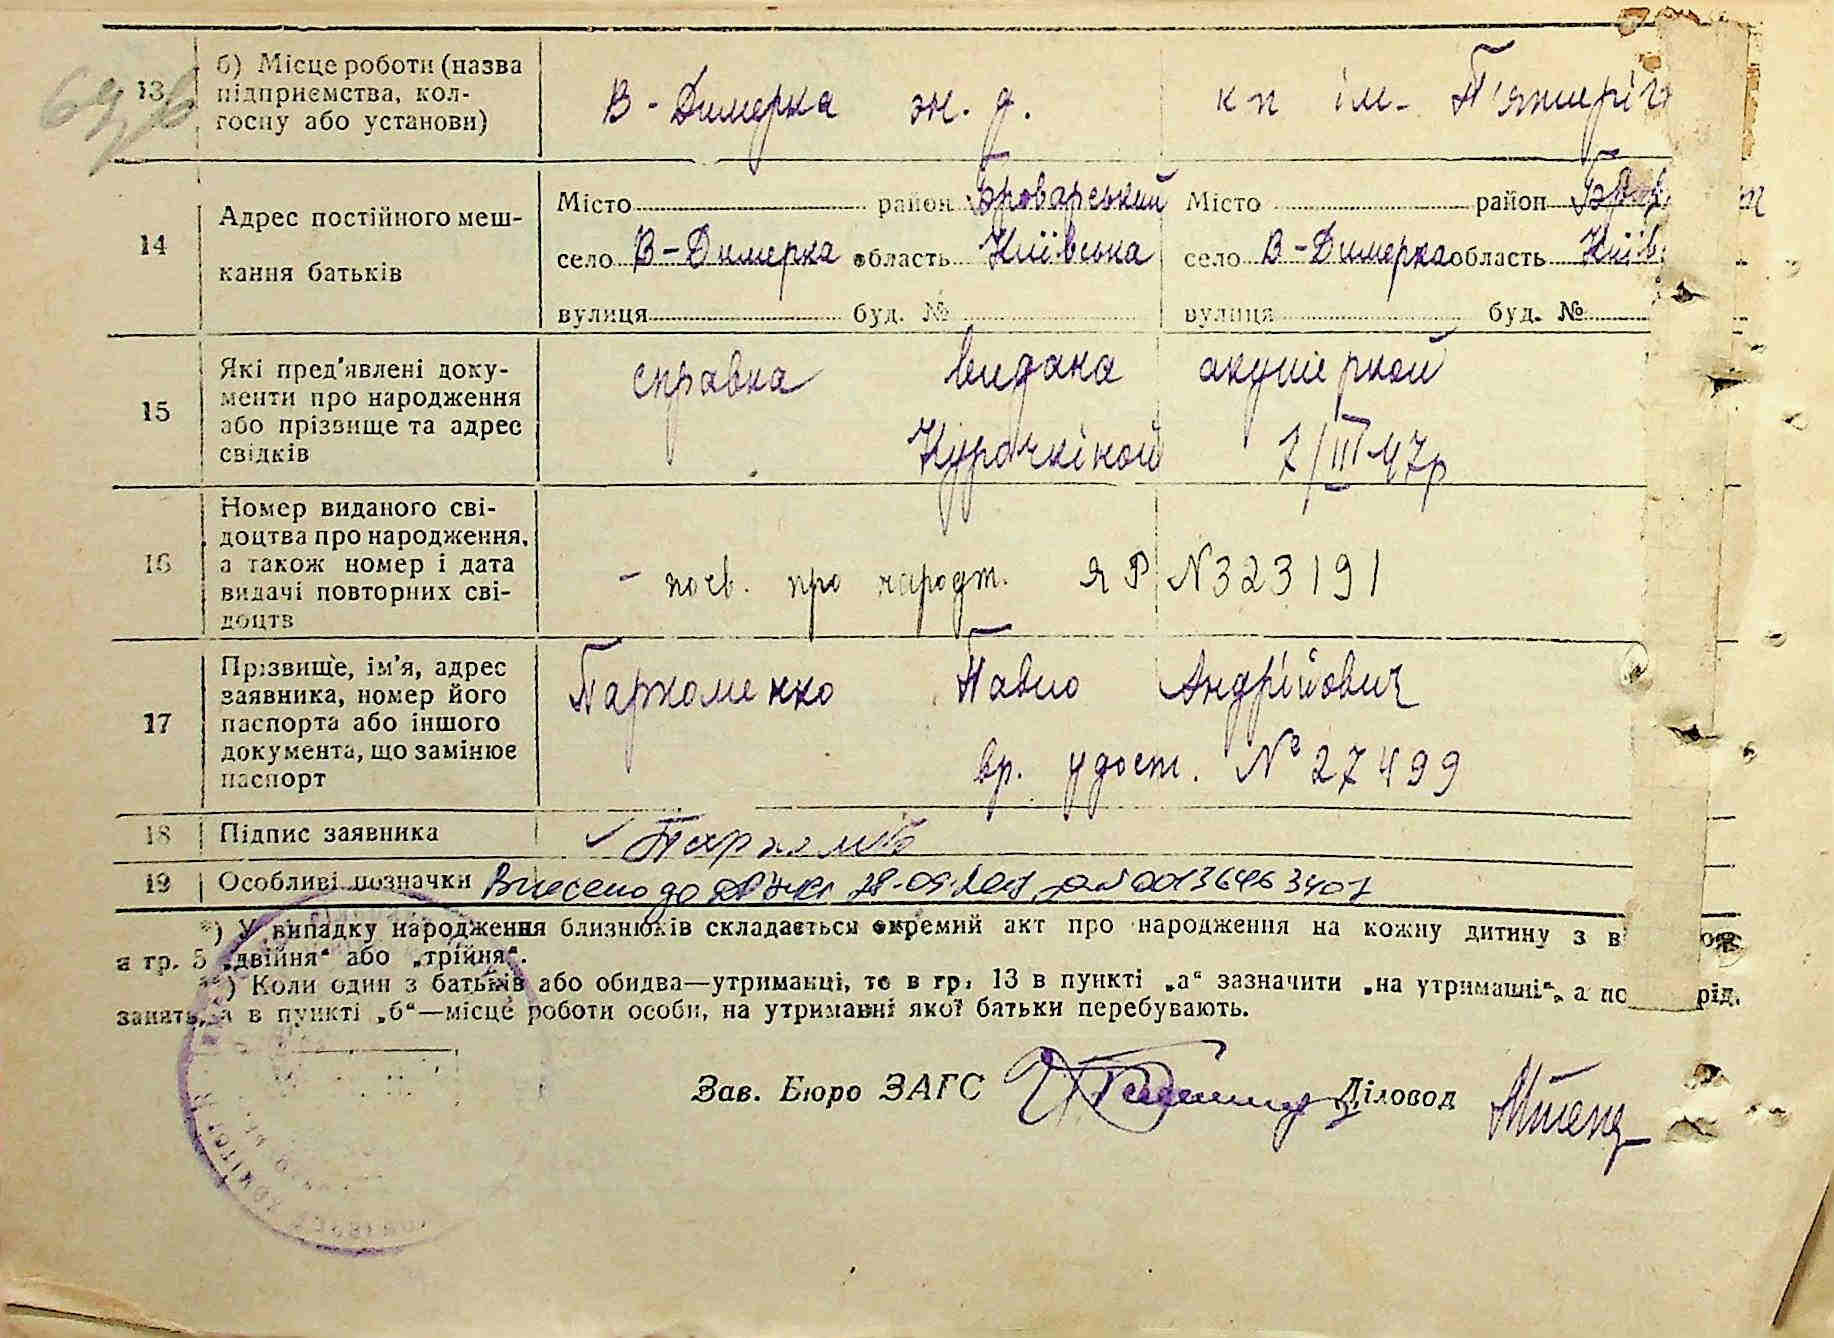 13 б) Місце роботи (назва
підприємства, кол-
госпу або установи)
В-Димерка эк. д. кп ім. П'ятиріч
14 Адрес постійного меш-
кання батьків
Місто район Броварський Місто район Бров
село В-Димерка область Київська село В-Димерка область Київ
вулиця буд. № вулиця буд. №
15 Які пред'явлені доку-
менти про народження
або прізвище та адрес
свідків
справка видана акушеркой
Курочкіной 7/III 47р
16 Номер виданого сві-
доцтва про народження,
а також номер і дата
видачі повторних сві-
доцтв
- посв. про народж. ЯР N323191
17 Прізвище, ім'я, адрес
заявника, номер його
паспорта або іншого
документа, що замінює
паспорт
Пархоменко Павло Андрійович
вр. удост. № 27499
18 Підпис заявника
19 Особливі позначки Внесено до
*) У випадку народження близнюків складається окремий акт про народження на кожну дитину з в
в гр. 5 „двійня“ або „трійня“.
*) Коли один з батьків або обидва—утриманці, то в гр. 13 в пункті „а“ зазначити „на утриманні“, а по рід.
занять, а в пункті „б“—місце роботи особи, на утриманні якої батьки перебувають.
Зав. Бюро ЗАГС Діловод